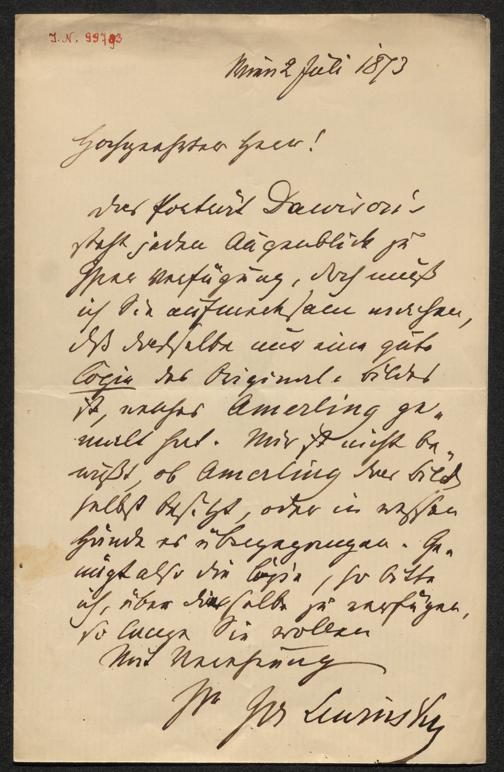 J.N. 99793
Wien 2 Juli 1873
Hochgeehrter Herr!
Das Porträt Dawison's
steht jeden Augenblick zu
Ihrer Verfügung, doch muß
ich Sie aufmerksam machen,
daß dasselbe nur eine gute
Copie des Original-Bildes
ist, welches Amerling ge-
malt hat. Mir ist nicht be-
wußt, ob Amerling das Bild
selbst besitzt, oder in wessen
Hände es übergegangen. Ge-
nügt also die Copie, so bitte
ich, über dieselbe zu verfügen,
so lange Sie wollen
Mit Verehrung
Ihr Jos Lewinsky